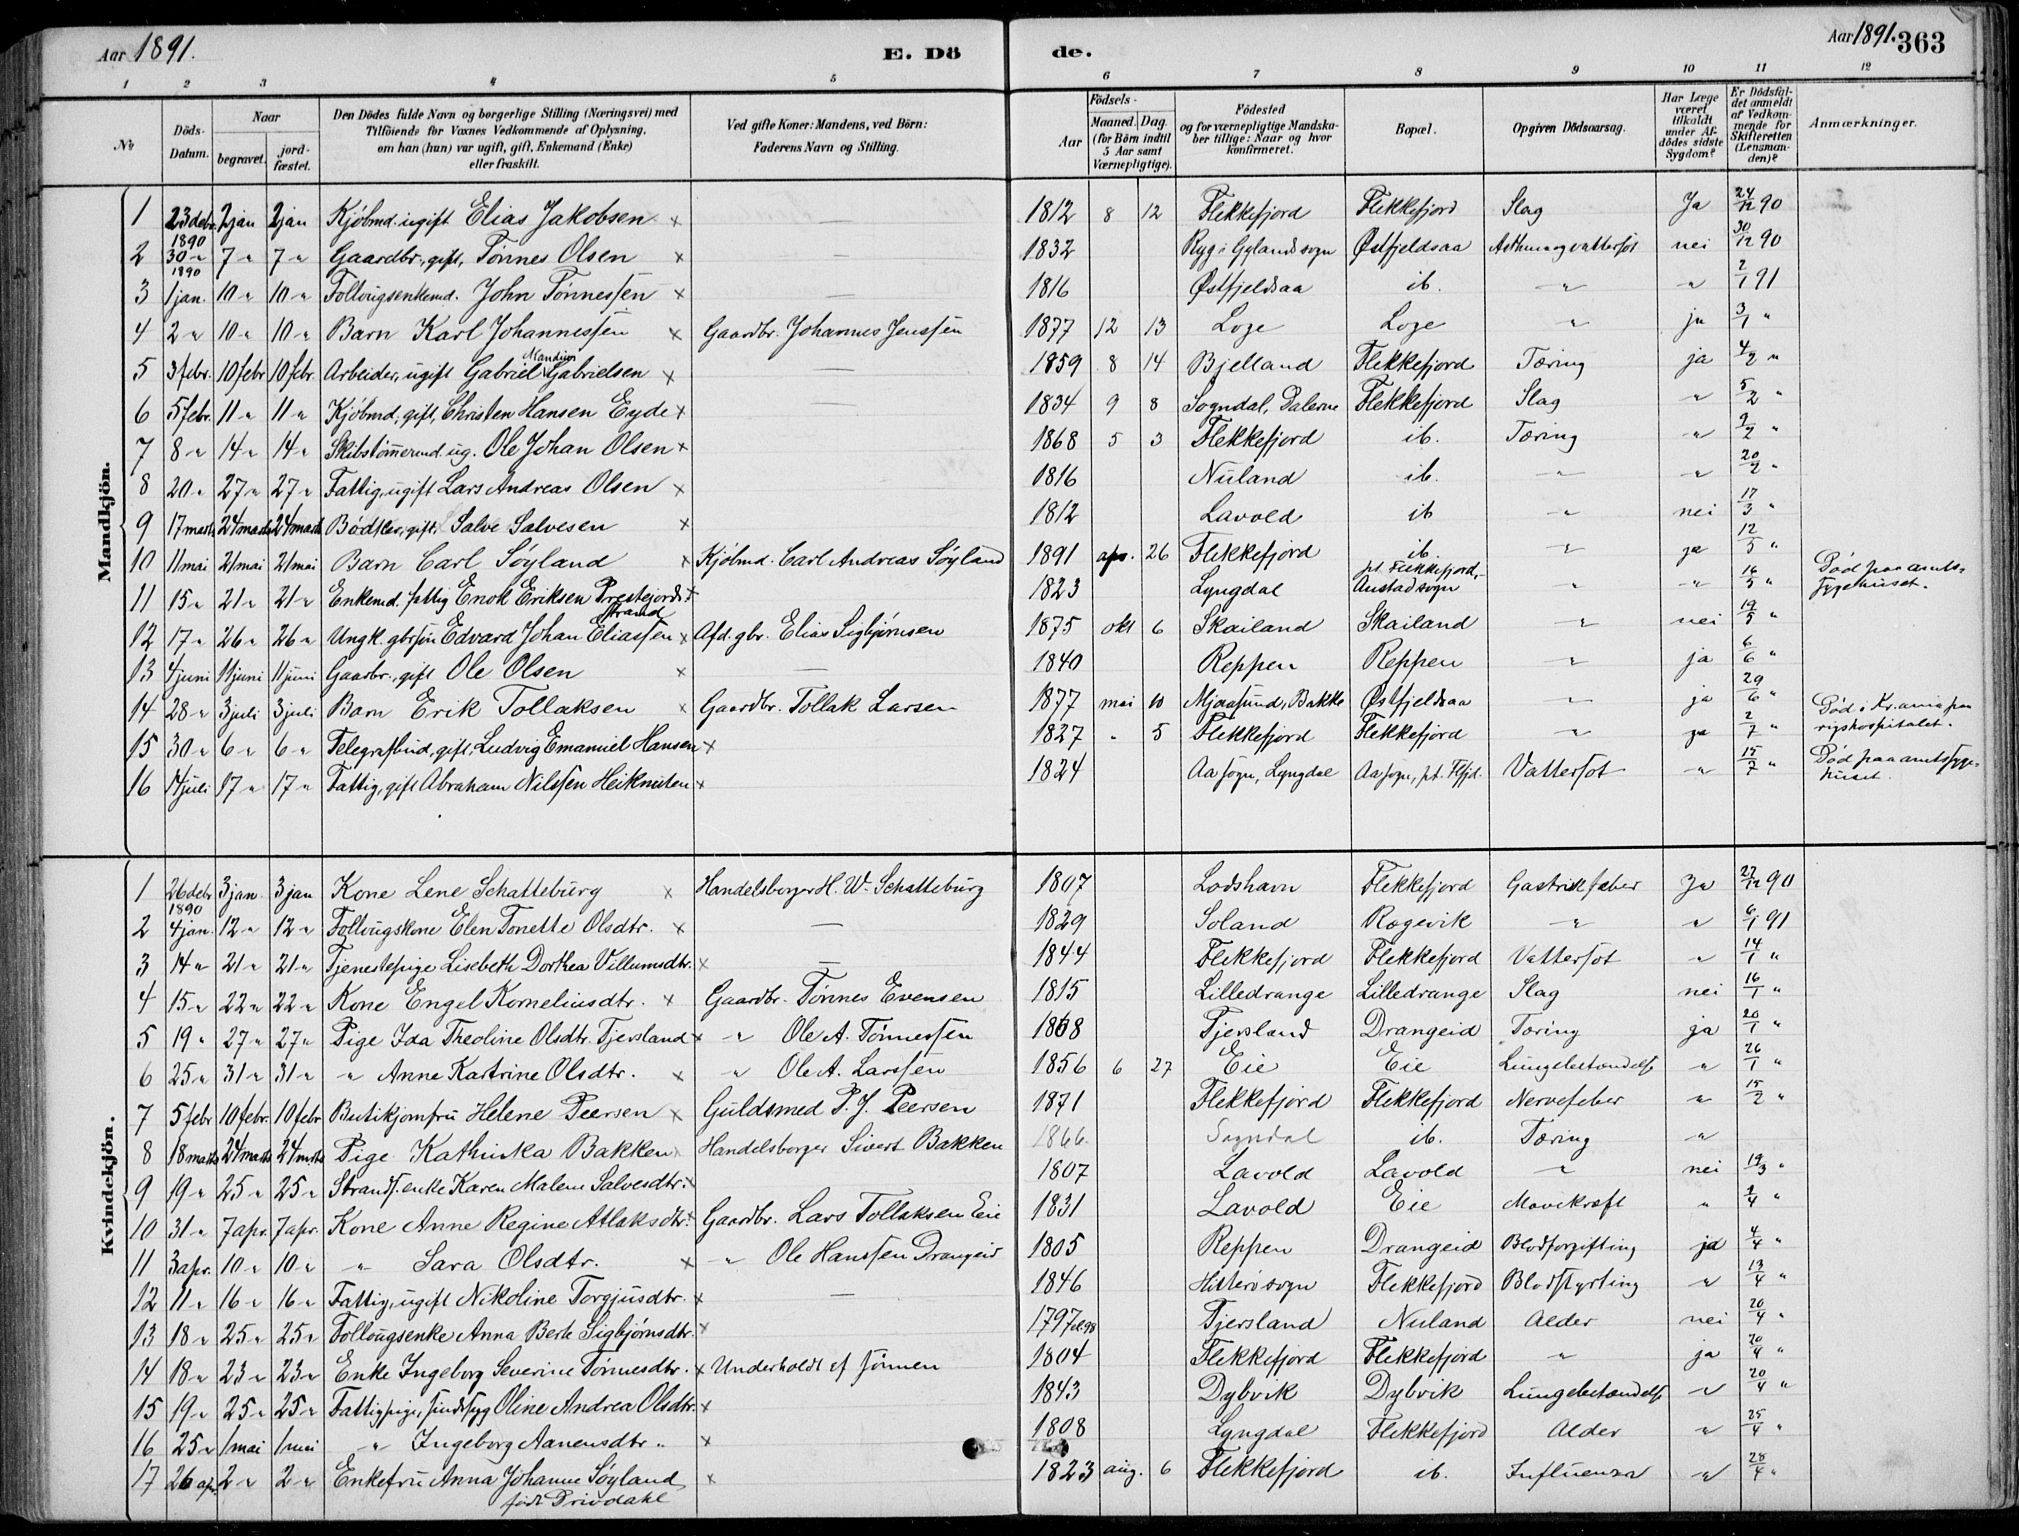 Aar 1891. E. Dö de. Aar 1891. 363
1 2 3 4 5 6 7 8 9 10 11 12
No
Döds-Datum.
Naar
begravet.
jord-fæstet.
Den Dödes fulde Navn og borgerlige Stilling (Næringsvei) med
Tilföiende for Voxnes Vedkommende af Oplysning,
om han (hun) var ugift, gift, Enkemand (Enke)
eller fraskilt.
Ved gifte Koner: Mandens, ved Börn:
Faderens Navn og Stilling.
Födsels-
Aar
Maaned. Dag.
(for Börn indtil
5 Aar samt
Værnepligtige).
Födested
og for værnepligtige Mandska-
ber tillige: Naar og hvor
konfirmeret.
Bopæl.
Opgiven Dödsaarsag.
Har Læge
været
tilkaldt
under Af-
dödes sidste
Sygdom?
Er Dödsfal-
det anmeldt
af Vedkom-
mende for
Skifteretten
(Lensman-
den)?
Anmærkninger.
Mandkjön.
1 23 debr. 1890 2 jan 2 jan Kjöbmd. ugift Elias Jakobsen x — 1812 8 12 Flekkefjord Flekkefjord Slag Ja 24/12 90
2 30 " 1890 7 " 7 " Gaardbr., gift, Tönnes Olsen x — 1832 Ryg i Gylands sogn Østfjeldsaa Asthma og vattersot nei 30/12 90
3 1 jan. 10 " 10 " Follougsenkemd. John Tönnessen x — 1816 Østfjeldsaa ib. " " 2/1 91
4 2 " 10 " 10 " Barn Karl Johannessen x Gaardbr. Johannes Jenssen 1877 12 13 Loge Loge " ja 3/1 "
5 3 febr. 10 febr 10 febr. Arbeider, ugift Gabriel Mandius Gabrielsen x — 1859 8 14 Bjelland Flekkefjord Tæring ja 4/2 "
6 5 febr. 11 " 11 " Kjöbmd, gift, Christen Hansen Eyde x — 1834 9 8 Sogndal, Dalerne Flekkefjord Slag " 5/2 "
7 8 " 14 " 14 " Skibstömermd. ug. Ole Johan Olsen x 1868 5 3 Flekkefjord ib. Tæring " 9/2 "
8 20 " 27 " 27 " Fattig, ugift Lars Andreas Olsen x 1816 Nuland ib. " " 20/2 "
9 17 marts 24 marts 24 marts Bödtker, gift, Salve Salvesen x 1812 Lavold ib " nei 17/3 "
10 11 mai 21 mai 21 mai Barn Carl Söyland x Kjöbmd. Carl Andreas Söyland 1891 apr. 26 Flekkefjord ib. " ja 12/5 "
11 15 " 21 " 21 " Enkemd. fattig Enok Eriksen Prestejord x 1823 Lyngdal pt. Flekkefjord, Austad sogn " " 16/5 " Död paa amts-sygehuset.
12 17 " 26 " 26 " Ungk. gbrsön Edvard Johan Eliassen Strand x Afd. gbr. Elias Sigbjörnsen 1875 okt 6 Skailand Skailand " nei 19/5 "
13 4 juni 11 juni 11 juni Gaardbr., gift Ole Olsen x — 1840 Reppen Reppen " ja 6/6 "
14 28 " 3 juli 3 juli Barn Erik Tollaksen x Gaardbr. Tollak Larsen 1877 mai 10 Mjaasund, Bakke Østfjeldsaa " ja 29/6 "
15 30 " 6 " 6 " Telegrafbud, gift, Ludvig Emanuel Hansen x 1827 " 5 Flekkefjord Flekkefjord " ja 2/7 " Död i Kr.ania paa rigshospitalet.
16 14 juli 17 " 17 " Fattig, gift Abraham Nilssen Heiknuten x 1824 Aa sogn, Lyngdal Aa sogn, pt. Flfjd. Vattersot " 15/7 " Död paa amtssyge-huset.
Kvindekjön.
1 26 debr 1890 3 jan. 3 jan Kone Lene Schatteburg x Handelsborger H. W. Schatteburg 1807 Lodshavn Flekkefjord Gastrisk feber Ja 27/12 90
2 4 jan. 12 " 12 " Follougskone Elen Tonette Olsdtr. x — 1829 Soland Rægevik " " 6/1 91
3 14 " 21 " 21 " Tjenestepige Lisebeth Dorthea Villumsdtr. x — 1844 Flekkefjord Flekkefjord Vattersot " 14/1 "
4 15 " 22 " 22 " Kone Engel Korneliusdtr. x Gaardbr. Tönnes Evensen 1815 Lilledrange Lilledrange Slag nei 16/1 "
5 19 " 27 " 27 " Pige Ida Theoline Olsdtr. Tjersland x " Ole A. Tönnessen 1868 Tjersland Drangeid Tæring ja 20/1 "
6 25 " 31 " 31 " " Anne Kartrine Olsdtr. x " Ole A. Larssen 1856 6 27 Eie Eie Lungebetændelse " 26/1 "
7 5 febr 10 febr. 10 febr Butikjomfru Helene Peersen x Guldsmed P. J. Peersen 1871 Flekkefjord Flekkefjord Nervefeber " 15/2 "
8 18 marts 24 marts 24 marts Pige Kathinka Bakken x Handelsborger Sivert Bakken 1866 Sogndal ib. Tæring "
9 19 " 25 " 25 " Strands. enke Karen Malene Salvesdtr. x 1807 Lavold Lavold " nei 19/3 "
10 31 " 7 apr. 7 apr. Kone Anne Regine Atlaksdtr. x Gaardbr. Lars Tollaksen Eie 1831 Lavold Eie Mavekræft " 2/4 "
11 3 apr. 10 " 10 " " Sara Olsdtr. x " Ole Hanssen Drangeid 1805 Reppen Drangeid Blodforgiftning ja 4/4 "
12 11 " 16 " 16 " Fattig, ugift Nikoline Torgjusdtr. x — 1846 Hitterö sogn Flekkefjord Blodstyrtning " 13/4 "
13 18 " 25 " 25 " Follougsenke Anna Berte Sigbjörnsdtr. x 1797 el. 98 Tjersland Nuland Alder nei 20/4 "
14 18 " 23 " 23 " Enke Ingeborg Severine Tönnesdtr. x Underholdt af sönnen 1804 Flekkefjord Flekkefjord " ja 20/4 "
15 19 " 25 " 25 " Fattigpige, sindssyg Oline Andrea Olsdtr. x 1843 Dybvik Dybvik Lungebetændelse " 20/4 "
16 25 " 1 mai 1 mai " Ingeborg Aanensdtr. x 1808 Lyngdal Flekkefjord Alder " 25/4 "
17 26 apr. 2 " 2 " Enkefru Anna Johanne Söyland x 1823 aug. 6 Flekkefjord ib. Influenza " 28/4 "
födt Privdahl